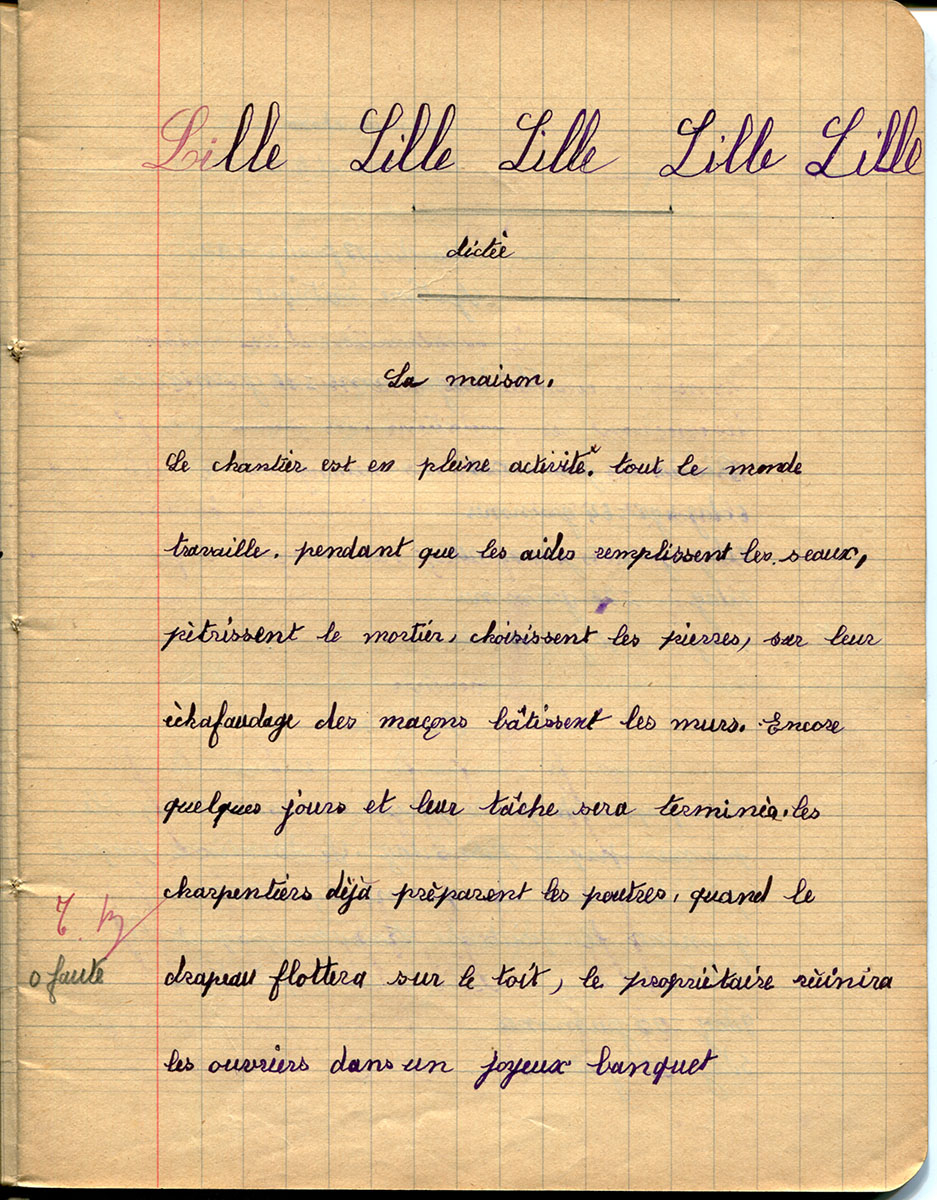 Lille Lille Lille Lille Lille
dictée
La maison.
Le chantier est en pleine activité. tout le monde
travaille. pendant que les aides remplissent les seaux,
pétrissent le mortier, choisissent les pierres, sur leur
échafaudage des maçons bâtissent les murs. Encore
quelques jours et leur tâche sera terminée. les
charpentiers déjà préparent les poutres. quand le
T. B
drapeau flottera sur le toit, le propriétaire réunira
0 faute
les ouvriers dans un joyeux banquet